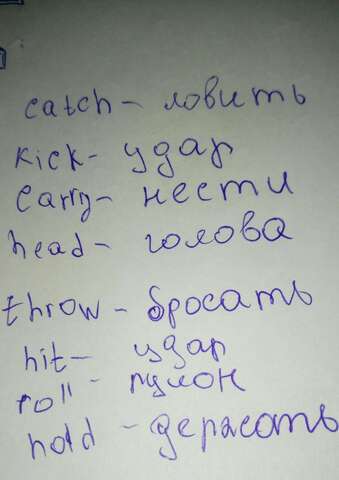 catch - ловить
kick - удар
carry - нести
head - голова
throw - бросать
hit - удар
roll - рулон
hold - держать